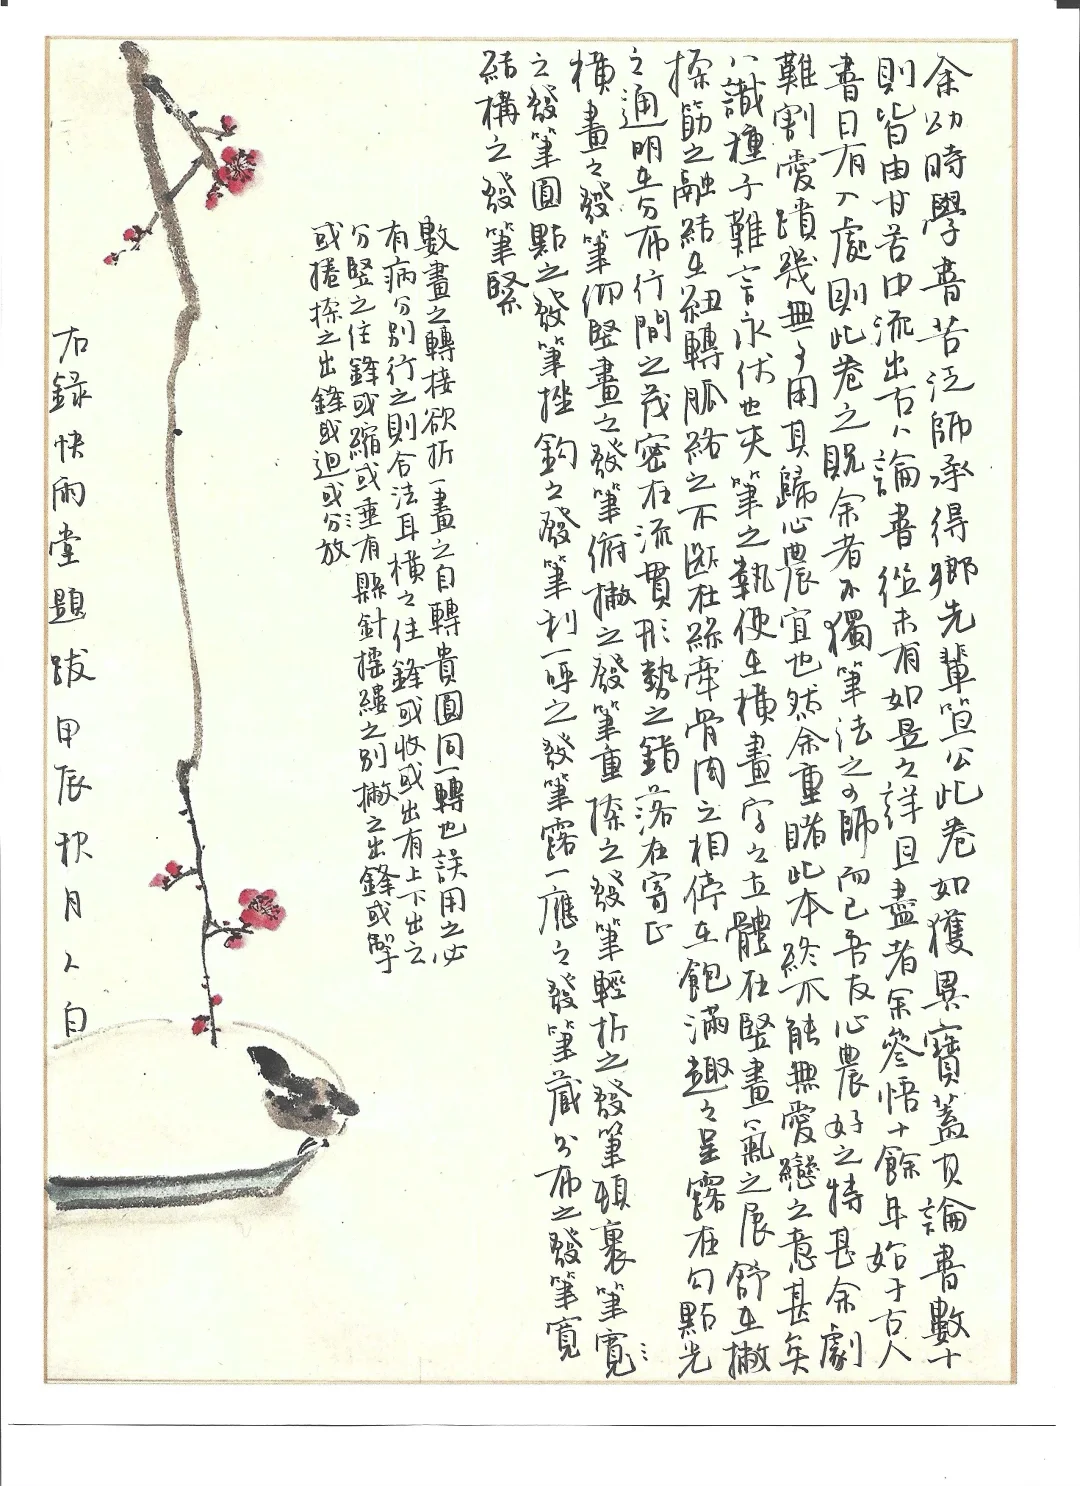 余幼時學書苦泛師承得鄉先輩笪公此卷如獲異寶蓋其論書數十
則皆由甘苦中流出古人論書從未有如是之詳且盡者余參悟十餘年始于古人
書日有入處則此卷之貺余者不獨筆法之可師而已吾友心農好之特甚余劇
難割愛躓幾無可用其歸心農宜也然余重睹此本終不能無愛戀之意甚矣
八識種子難言永伏也夫筆之執便在橫畫字之立體在竪畫氣之展舒在撇
捺筋之融結在紐轉脈絡之不斷在絲牽骨肉之相停在飽滿趣之呈露在勾點光
之通明在分布行間之茂密在流貫形勢之錯落在寄正
橫畫之發筆仰竪畫之發筆俯撇之發筆重捺之發筆輕折之發筆頓裹筆寬
之發筆圓點之發筆挫鈎之發筆利一呼之發筆露一應之發筆藏分布之發筆寬
結構之發筆緊
數畫之轉接欲折一畫之自轉貴圓同一轉也誤用之必
有病分別行之則合法耳橫之住鋒或收或出有上下出之
分竪之住鋒或縮或垂有縣針搖縷之別撇之出鋒或掣
或捲捺之出鋒或迴或放
右錄快雨堂題跋甲辰秋月人白